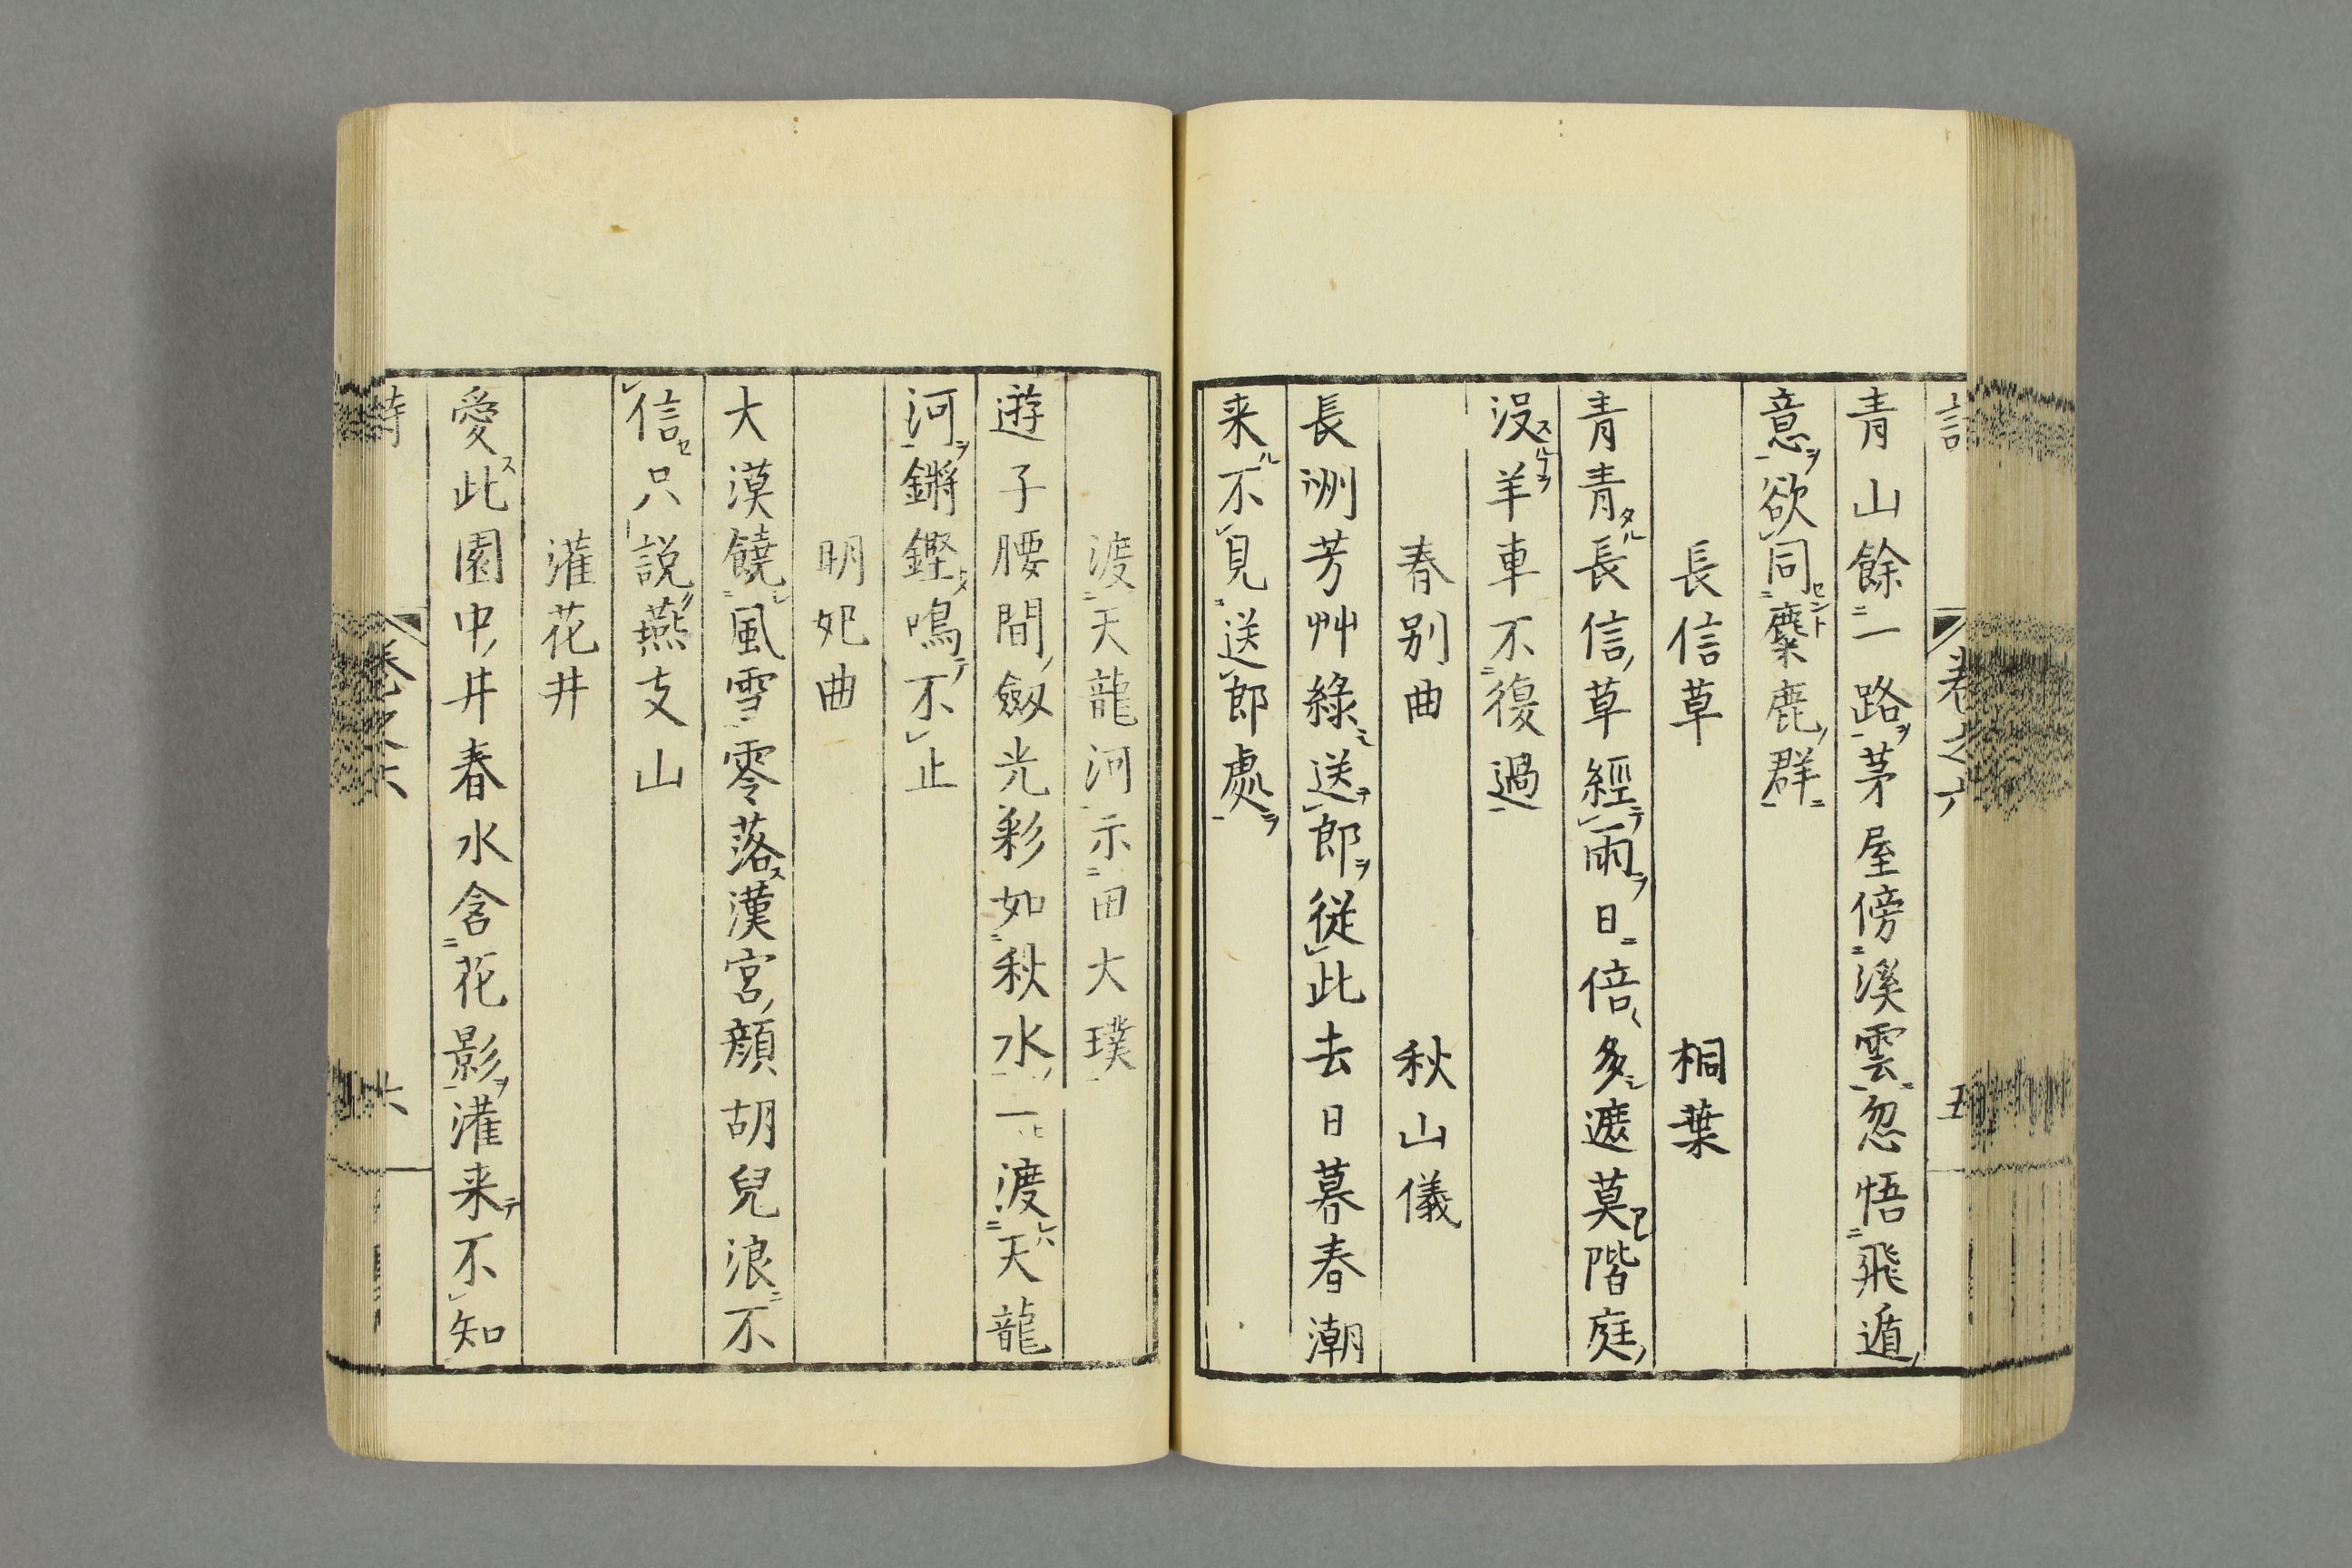 青山餘一路茅屋傍溪雲忽悟飛遁
意欲同麋鹿群
長信草 桐葉
青青長信草經雨日倍多遮莫階庭
沒羊車不復過
春別曲 秋山儀
長洲芳艸綠送郎從此去日暮春潮
来不見送郎處
渡天龍河示田大璞
遊子腰間劔光彩如秋水一渡天龍
河鏘鏗鳴不止
明妃曲
大漠饒風雪零落漢宮顔胡兒浪不
信只説燕支山
灌花井
愛此園中井春水含花影灌来不知